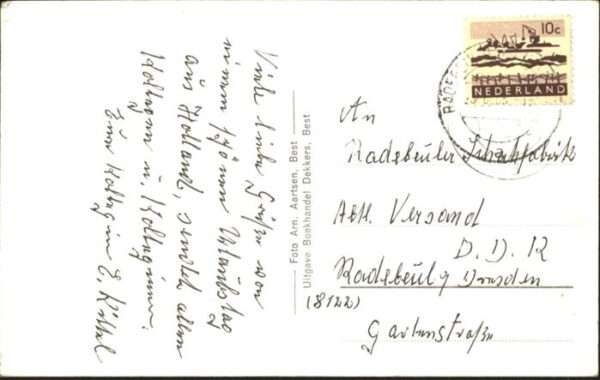 Viele liebe Grüße von
einem schönen Urlaubstag
aus Holland, sendet allen
Kollegen u. Kolleginnen.
Eure Kollegin E.
Foto Arn. Aartsen, Best
Uitgave Boekhandel Dekkers, Best
10c
NEDERLAND
An
Radebeuler Schuhfabrik
Abt. Versand
D. D. R
Radebeul b/ Dresden
(8122)
Gartenstraße